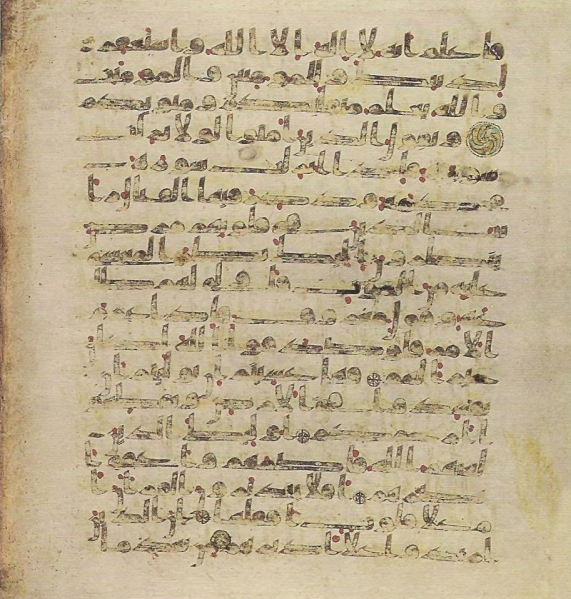 فاعلم انه لا اله الا الله واستغفر
لذنبك وللمومنين والمومنت
والله يعلم متقلبكم ومثويكم
ويقول الذين امنوا لولا نزلت
سورة فاذا انزلت سورة
محكمة وذكر فيها القتال را
يت الذين في قلوبهم مرض
ينظرون اليك نظر المغشي
عليه من الموت فاولى لهم طا
عة وقول معروف فاذا عزم
الامر فلو صدقوا الله لكا
ن خيرا لهم فهل عسيتم ان توليتم ا
ن تفسدوا في الارض وتقطعوا
ارحامكم اولئك الذين
لعنهم الله فاصمهم واعمى ا
بصرهم افلا يتدبرون القران ا
م على قلوب اقفالها ان الذين
ارتدوا على ادبرهم من بعد ما